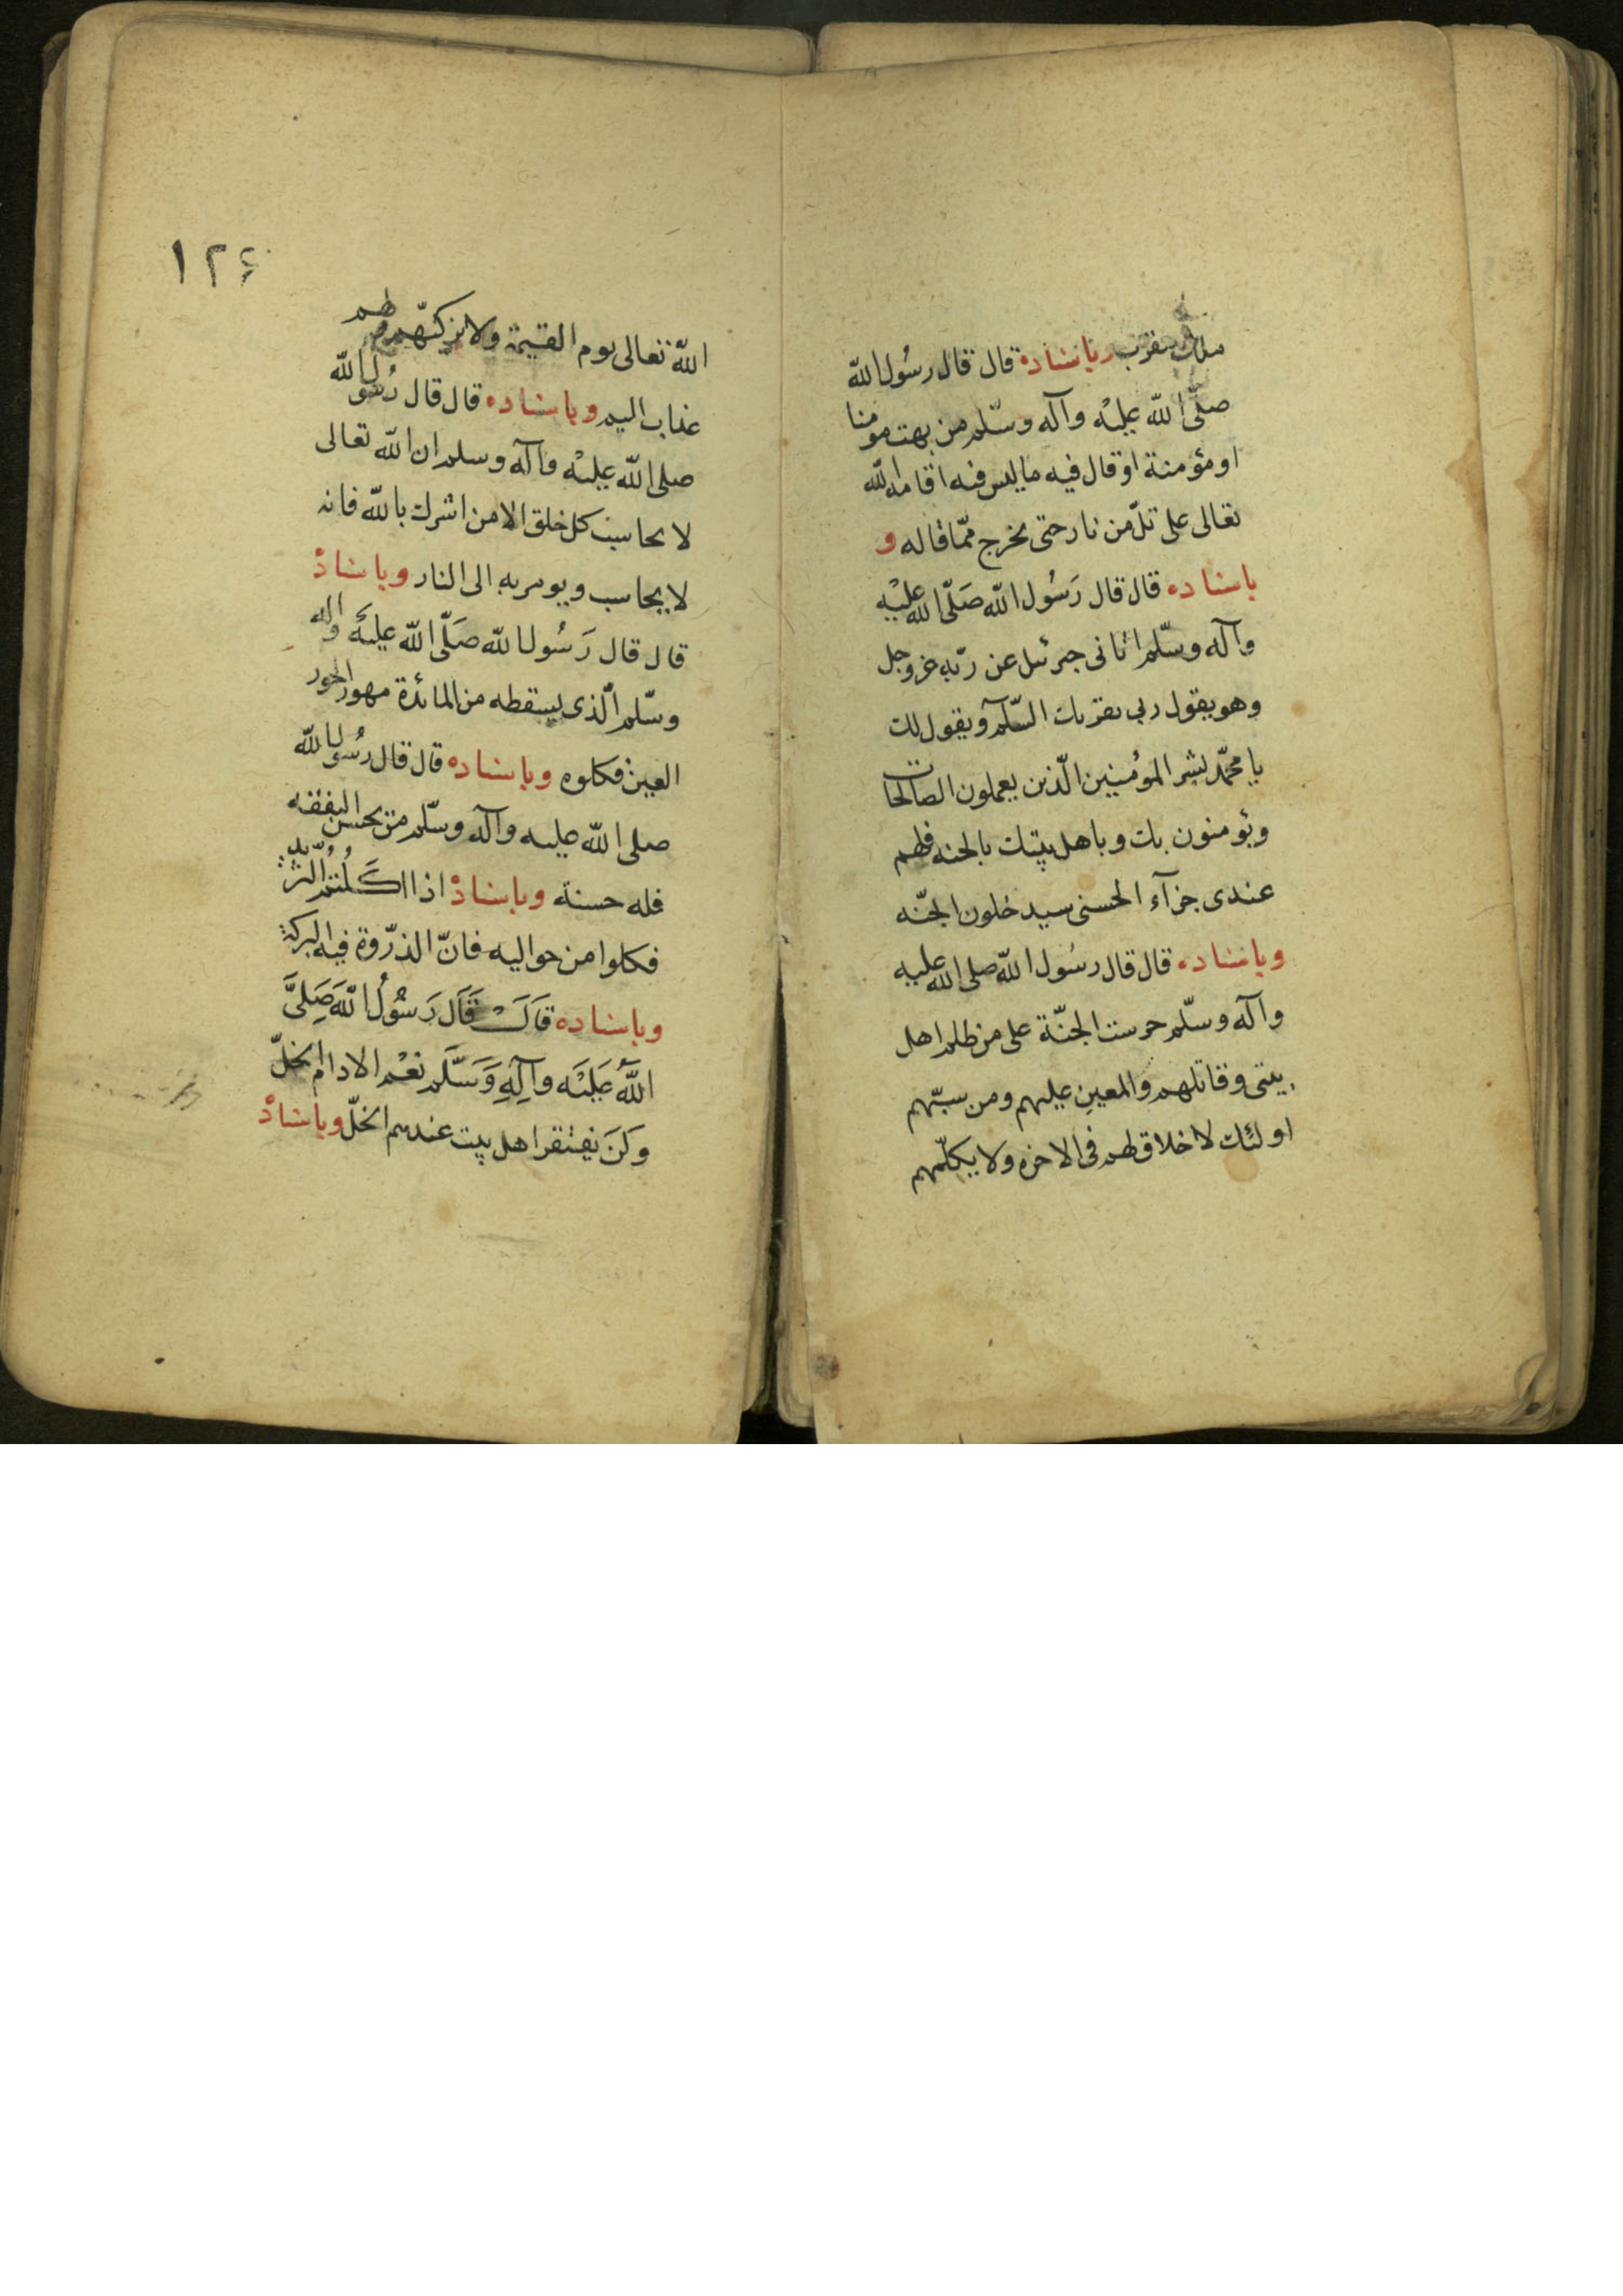 ملك مقرب وباسناده قال قال رسُول الله
صلّى الله عليْه وآله وسّلم من بهت مومنا
او مؤمنة او قال فيه ما ليس فيه اقامه الله
تعالى على تلّ من نار حتى يخرج ممّا قاله و
باسناده قال قال رَسُول الله صَلّى الله عليْه
وآله وسّلم اتانى جبرئيل عن ربّه عز وجل
وهو يقول ربى يقربك السّلم ويقول لك
يا محمّد بشر المؤمنين الّذين يعملون الصالحات
ويؤمنون بك وباهل بيتك بالجنه فلهم
عندى جزآء الحسنى سيدخلون الجنّه
وباسناده قال قال رسُول الله صلى الله عليه
وآله وسلّم حرمت الجنّة على من ظلم اهل
بيتى وقاتلهم والمعين عليهم ومن سبّهم
اولئك لا خلاق لهم فى الاخره ولا يكلّمهم
١٢۶
الله تعالى يوم القيمة ولا يزكيّهم ولهم
عذاب اليم وباسناده قال قال رسُول الله
صلى الله عليْه وآله وسلم ان الله تعالى
لا يحاسب كل خلق الا من اشرك بالله فانه
لا يحاسب ويومر به الى النار وباسنادهْ
قال قال رَسُول الله صَلّى الله عليَه واله
وسّلم الّذى يسقطه من المائدة مهور الحور
العين فكلوه وباسناده قال قال رسُول الله
صلى الله عليه وآله وسّلم من يحسن النفقه
فله حسنة وباسنادهْ اذا اكَلْتُم الثّريد
فكلوا من حواليه فانّ الذرّوة فيه البركة
وباسناده قَالَ قَالَ رَسُولُ اللهَ صَلِىَّ
اللهُ عَلَيْه وآلِهِ وَسَّلَم نعْم الادام الخلّ
وَلَنَ يفتقر اهل بيت عندهم الخلّ وباسنادهْ